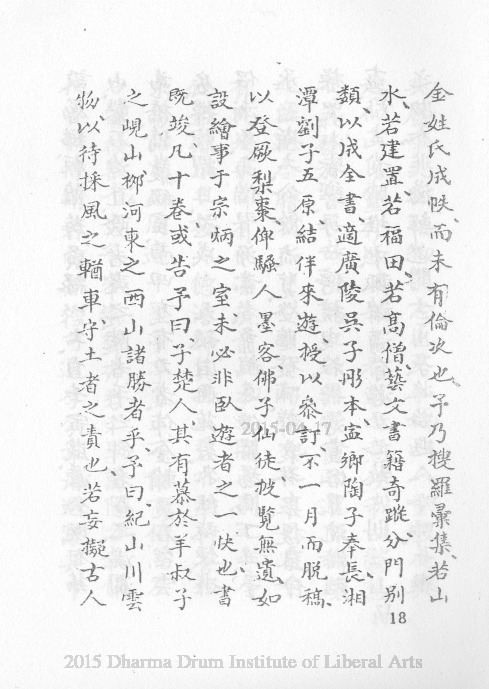 金姓氏成帙、而未有倫次也、予乃搜羅彙集、若山
水、若建置、若福田、若高僧、藝文書籍奇蹤、分門別
類、以成全書、適廣陵吳子彤本、盍鄉陶子奉長、湘
潭劉子五原、結伴來遊、授以叅訂不一月而脫稿、
以登厥梨棗俾騷人墨客、佛子仙徒、披覽無遺、如
設繪事于宗炳之室、未必非臥遊者之一快也、書
既竣凡十卷、或告予曰、子楚人、其有慕於羊叔子
之峴山栁河東之西山諸勝者乎、予曰、紀山川雲
物、以待採風之輶車、守土者之責也、若妄擬古人
18
2015-04-17
2015 Dharma Drum Institute of Liberal Arts